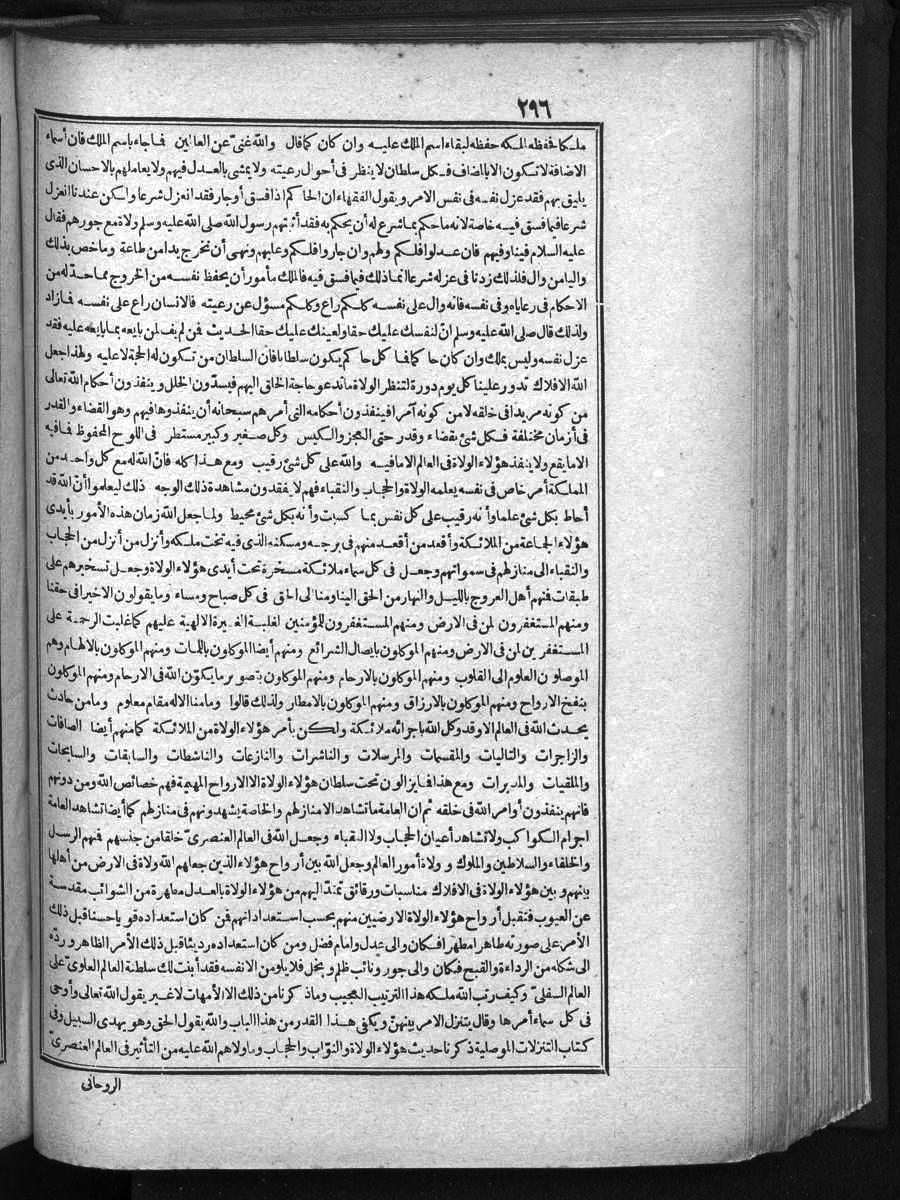 ٢٩٦
ملكا فحفظه لملكه حفظه لبقاء اسم الملك عليه وان كان كما قال والله غنىّ عن العالمين فما جاء باسم الملك فان أسماء
الاضافة لا تكون الا بالمضاف فكل سلطان لا ينظر فى أحوال رعيته ولا يمشى بالعدل فيهم ولا يعاملهم بالاحسان الذى
يليق بهم فقد عزل نفسه فى نفس الامر ويقول الفقهاء ان الحاكم اذا فسق أو جار فقد انعزل شرعا ولكن عندنا انعزل
شرعا فيما فسق فيه خاصة لانه ما حكم بما شرع له أن يحكم به فقد أثبتهم رسول الله صلى الله عليه وسلم ولاة مع جورهم فقال
عليه السلام فينا وفيهم فان عدلوا فلكم ولهم وان جاروا فلكم وعليهم ونهى أن نخرج يدا من طاعة وما خص بذلك
واليا من وال فلذلك زدنا فى عزله شرعا انما ذلك فيما فسق فيه فالملك مأمور أن يحفظ نفسه من الخروج مما حدّ له من
الاحكام فى رعاياه وفى نفسه فانه وال على نفسه كلكم راع وكلكم مسؤل عن رعيته فالانسان راع على نفسه فما زاد
ولذلك قال صلى الله عليه وسلم انّ لنفسك عليك حقا ولعينك عليك حقا الحديث فمن لم يف لمن بايعه بما بايعه عليه فقد
عزل نفسه وليس بملك وان كان حاكما فما كل حاكم يكون سلطانا فان السلطان من تكون له الحجة لا عليه ولهذا جعل
الله الافلاك تدور علينا كل يوم دورة لتنظر الولاة ما تدعو حاجة الخلق اليهم فيسدّون الخلل وينفذون أحكام الله تعالى
من كونه مريدا فى خلقه لا من كونه آمرا فينفذون أحكامه التى أمرهم سبحانه أن ينفذوها فيهم وهو القضاء والقدر
فى أزمان مختلفة فكل شئ بقضاء وقدر حتى العجز والكيس وكل صغير وكبير مستطر فى اللوح المحفوظ فما فيه
الا ما يقع ولا ينفذ هؤلاء الولاة فى العالم الا ما فيه والله على كل شئ رقيب ومع هذا كله فانّ الله له مع كل واحد من
المملكة أمر خاص فى نفسه يعلمه الولاة والحجاب والنقباء فهم لا يفقدون مشاهدة ذلك الوجه ذلك ليعلموا أنّ الله قد
أحاط بكل شئ علما وأنه رقيب على كل نفس بما كسبت وأنه بكل شئ محيط ولما جعل الله زمان هذه الأمور بأيدى
هؤلاء الجماعة من الملائكة وأقعد من أقعد منهم فى برجه ومسكنه الذى فيه تخت ملكه وأنزل من أنزل من الحجاب
والنقباء الى منازلهم فى سمواتهم وجعل فى كل سماء ملائكة مسخرة تحت أيدى هؤلاء الولاة وجعل تسخيرهم على
طبقات فمنهم أهل العروج بالليل والنهار من الحق الينا ومنا الى الحق فى كل صباح ومساء وما يقولون الا خيرا فى حقنا
ومنهم المستغفرون لمن فى الارض ومنهم المستغفرون للمؤمنين لغلبة الغيرة الالهية عليهم كما غلبت الرحمة على
المستغفرين لمن فى الارض ومنهم الموكلون بايصال الشرائع ومنهم أيضا الموكلون باللمات ومنهم الموكلون بالالهام وهم
الموصلون العلوم الى القلوب ومنهم الموكلون بالارحام ومنهم الموكلون بتصوير ما يكوّن الله فى الارحام ومنهم الموكلون
بنفخ الارواح ومنهم الموكلون بالارزاق ومنهم الموكلون بالامطار ولذلك قالوا وما منا الا له مقام معلوم وما من حادث
يحدث الله فى العالم الا وقد وكل الله باجرائه ملائكة ولكن بأمر هؤلاء الولاة من الملائكة كما منهم أيضا الصافات
والزاجرات والتاليات والمقسمات والمرسلات والناشرات والنازعات والناشطات والسابقات والسابحات
والملقيات والمدبرات ومع هذا فما يزالون تحت سلطان هؤلاء الولاة الا الارواح المهيمة فهم خصائص الله ومن دونهم
فانهم ينفذون أوامر الله فى خلقه ثم ان العامة ما تشاهد الا منازلهم والخاصة يشهدونهم فى منازلهم كما أيضا تشاهد العامة
اجرام الكواكب ولا تشاهد أعيان الحجاب ولا النقباء وجعل الله فى العالم العنصرىّ خلقا من جنسهم فمنهم الرسل
والخلفاء والسلاطين والملوك وولاة أمور العالم وجعل الله بين أرواح هؤلاء الذين جعلهم الله ولاة فى الارض من أهلها
بينهم وبين هؤلاء الولاة فى الافلاك مناسبات ورقائق تمتدّ اليهم من هؤلاء الولاة بالعدل مطهرة من الشوائب مقدسة
عن العيوب فتقبل أرواح هؤلاء الولاة الارضيين منهم بحسب استعداداتهم فمن كان استعداده قويا حسنا قبل ذلك
الأمر على صورته طاهرا مطهرا فكان والى عدل وامام فضل ومن كان استعداده رديئا قبل ذلك الأمر الطاهر وردّه
الى شكله من الرداءة والقبح فكان والى جور ونائب ظلم وبخل فلا يلومن الا نفسه فقد أبنت لك سلطنة العالم العلوىّ على
العالم السفلىّ وكيف رتب الله ملكه هذا الترتيب العجيب وما ذكرنا من ذلك الا الأمهات لا غير يقول الله تعالى وأوحى
فى كل سماء أمرها وقال يتنزل الامر بينهنّ ويكفى هذا القدر من هذا الباب والله يقول الحق وهو يهدى السبيل وفى
كتاب التنزلات الموصلية ذكرنا حديث هؤلاء الولاة والنوّاب والحجاب وما ولاهم الله عليه من التأثير فى العالم العنصرىّ
الروحانى